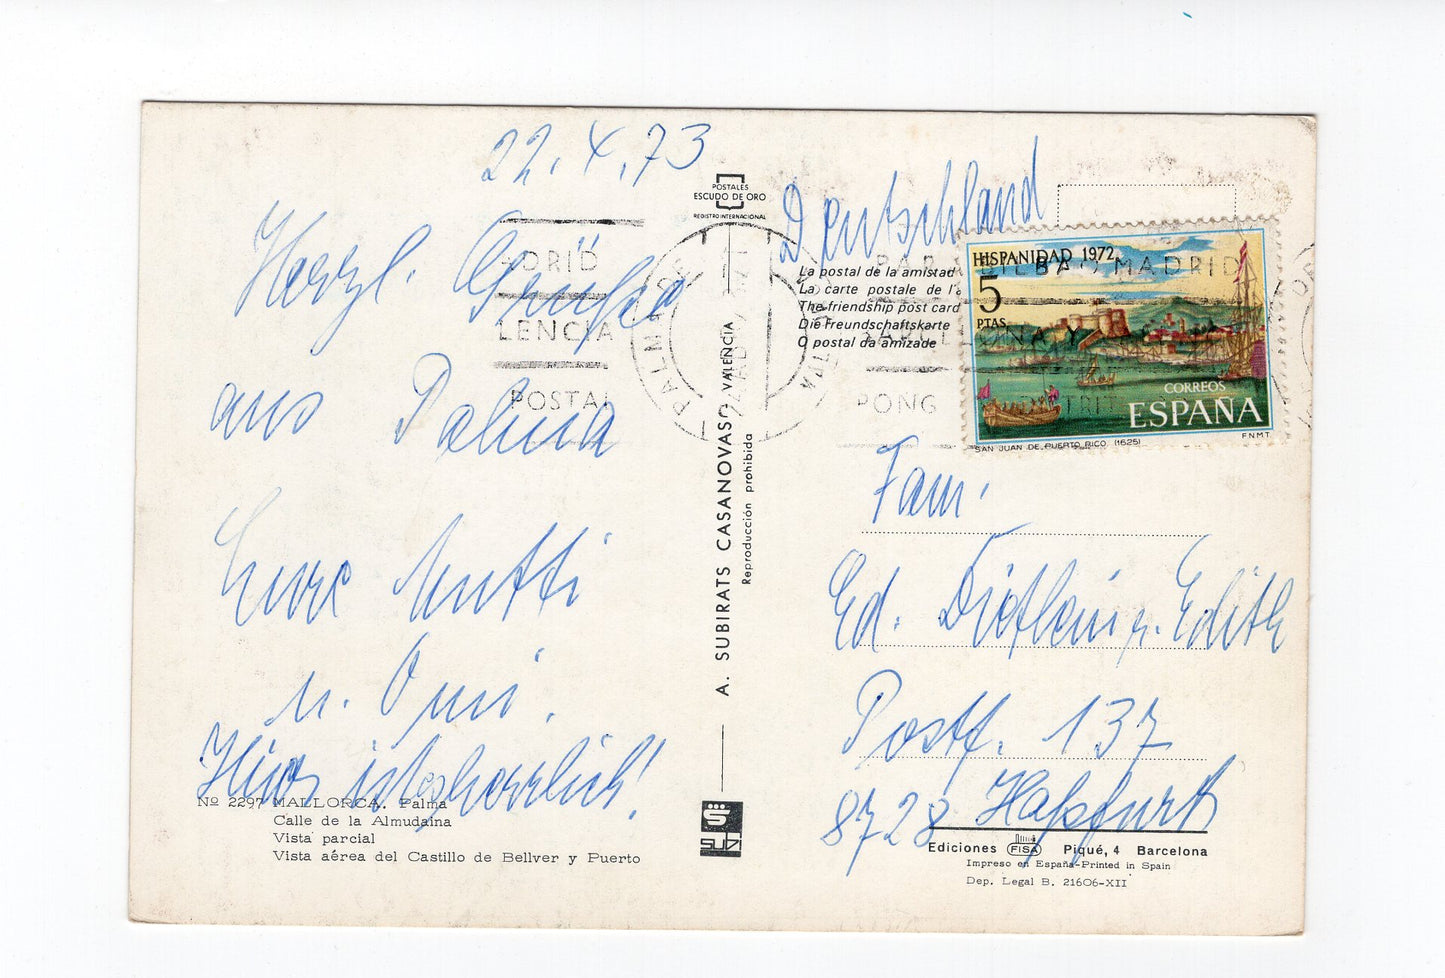 22. X. 73
Herzl. Grüße
aus Palma
Eure Mutti
u. Omi.
Hier ist es herrlich!
Nº 2297 MALLORCA. Palma
Calle de la Almudaina
Vista parcial
Vista aérea del Castillo de Bellver y Puerto
POSTALES
ESCUDO DE ORO
REGISTRO INTERNACIONAL
A. SUBIRATS CASANOVAS - VALENCIA
Reproducción prohibida
SUBI
Deutschland
La postal de la amistad
La carte postale de l'a
The friendship post card
Die Freundschaftskarte
O postal da amizade
HISPANIDAD 1972
5
PTAS
CORREOS
ESPAÑA
SAN JUAN DE PUERTO RICO (1625)
F N M T
ADRID
LENCIA
POSTAL
PALMA DE
PARA BILBAO, MADRID
PONG
Fam.
Ed. Dietlein u. Edith
Postf. 137
8728 Haßfurt
Ediciones FISA Piqué, 4 Barcelona
Impreso en España-Printed in Spain
Dep. Legal B. 21606-XII